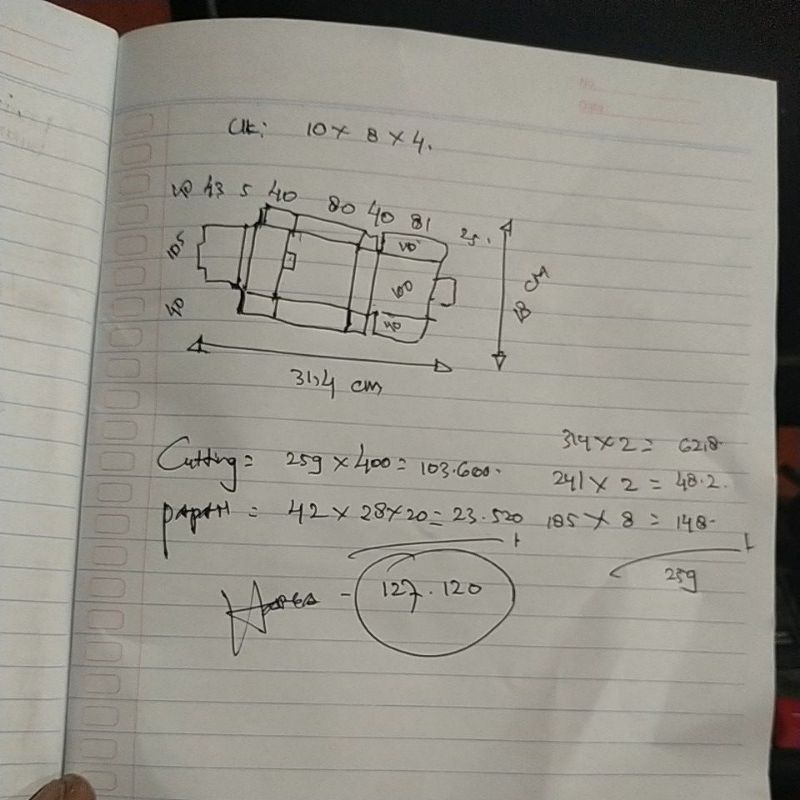 No.
Date
Uk: 10 x 8 x 4.
40 43 5 40 80 40 81 25.
105
40
40
100
40
18 cm
31,4 cm
314 x 2 = 62,8
Cutting = 259 x 400 = 103.600.
241 x 2 = 48.2.
papan = 42 x 28 x 20 = 23.520
185 x 8 = 148
+
+
259
Harga - 127.120